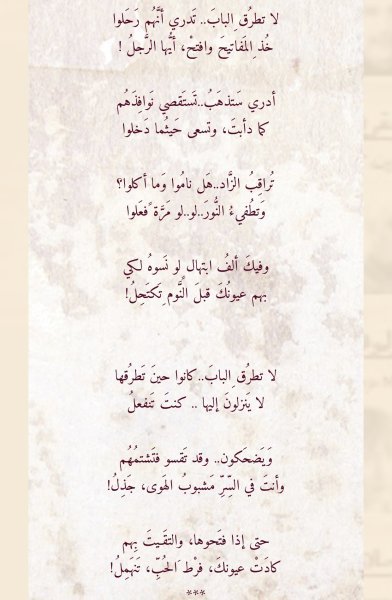 لا تطرُق ِالبابَ.. تَدري أنَّهُم رَحَلوا
خُذ ِالمَفاتيحَ وافتحْ، أيُّها الرَّجلُ !
أدري سَتذهَبُ..تَستَقصي نَوافِذَهُم
كما دأبتَ، وتسعى حَيثُما دَخلوا
تُراقِبُ الزَّاد..هَل نامُوا وَما أكلوا؟
وَتطُفيءُ النُّورَ..لو..لو مَرَّة ًفعَلوا
وفيكَ ألفُ ابتهال ٍلو نَسوهُ لكي
بهم عيونُكَ قبلَ النَّوم ِتَكتَحِلُ!
لا تطرُق ِالبابَ..كانوا حينَ تَطرُقها
لا يَنزلونَ إليها .. كنتَ تَنفعلُ
وَيَضحَكون.. وقد تَقسو فتَشتمُهُم
وأنتَ في السِّرِّ مَشبوبُ الهَوى، جَذِلُ!
حتى إذا فتَحوها، والتقَـيتَ بِهم
كادَتْ عيونكَ، فَرْط َالحُبِّ، تَنهَمِلُ!
***